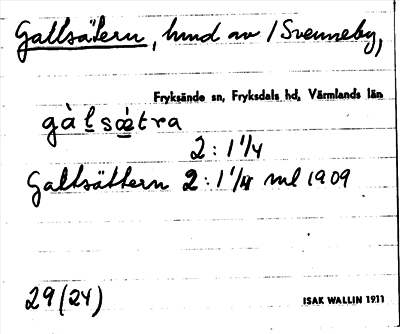 Gallsätern, hmd av /Svenneby,
Fryksände sn, Fryksdals hd, Värmlands län
gàlsǽtra
2:1 1/4
Galtsättern 2:1 1/4 ml 1909
29(24)
ISAK WALLIN 1911